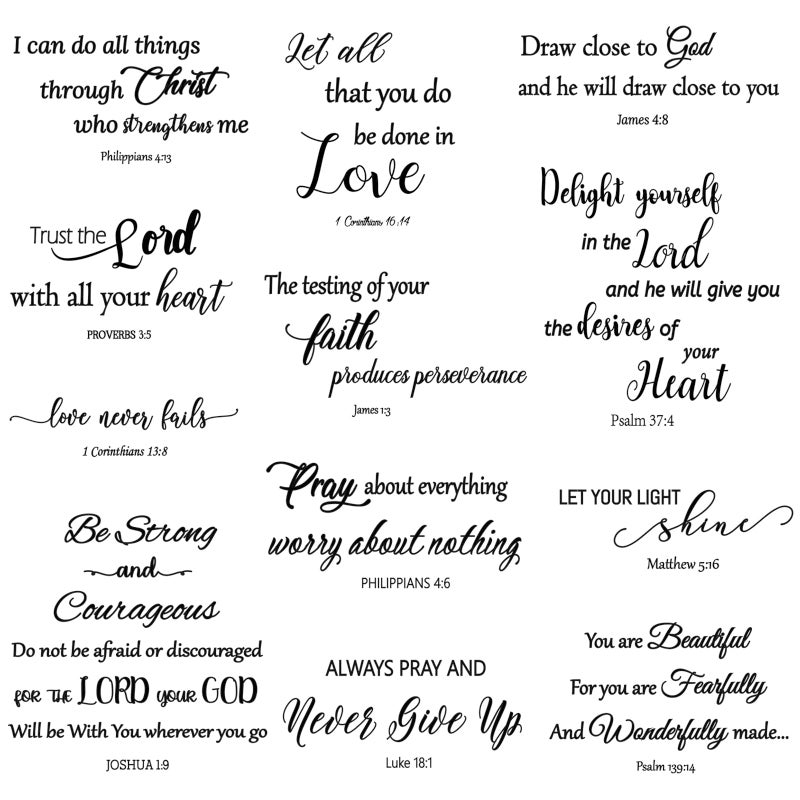 I can do all things
through Christ
who strengthens me
Philippians 4:13
Trust the Lord
with all your heart
PROVERBS 3:5
love never fails
1 Corinthians 13:8
Be Strong
and
Courageous
Do not be afraid or discouraged
for the LORD your GOD
Will be With You wherever you go
JOSHUA 1:9
Let all
that you do
be done in
Love
1 Corinthians 16:14
The testing of your
faith
produces perseverance
James 1:3
Pray about everything
worry about nothing
PHILIPPIANS 4:6
ALWAYS PRAY AND
Never Give Up
Luke 18:1
Draw close to God
and he will draw close to you
James 4:8
Delight yourself
in the Lord
and he will give you
the desires of
your
Heart
Psalm 37:4
LET YOUR LIGHT
shine
Matthew 5:16
You are Beautiful
For you are Fearfully
And Wonderfully made...
Psalm 139:14